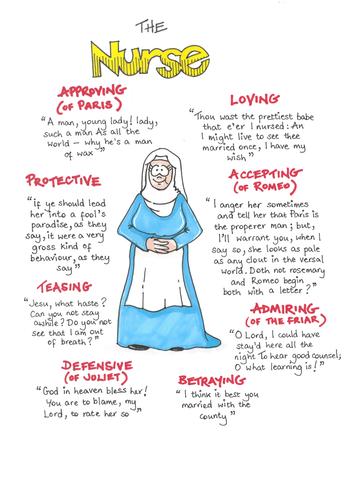 THE
Nurse
APPROVING
(OF PARIS)
"A man, young lady! lady,
such a man As all the
world - why he's a man
of wax"
PROTECTIVE
"if ye should lead
her into a fool's
paradise, as they
say, it were a very
gross kind of
behaviour, as they
say"
TEASING
"Jesu, what haste?
Can you not stay
awhile? Do you not
see that I am out
of breath?"
DEFENSIVE
(OF JULIET)
"God in heaven bless her!
You are to blame, my
Lord, to rate her so"
LOVING
"Thou wast the prettiest babe
that e'er I nursed: An
I might live to see thee
married once, I have my
wish"
ACCEPTING
(OF ROMEO)
"I anger her sometimes
and tell her that Paris is
the properer man; but,
I'll warrant you, when I
say so, she looks as pale
as any clout in the versal
world. Doth not rosemary
and Romeo begin
both with a letter?"
ADMIRING
(OF THE FRIAR)
"O Lord, I could have
stay'd here all the
night To hear good counsel;
O what learning is!"
BETRAYING
"I think it best you
married with the
county"